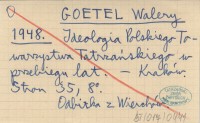 GOETEL Walery
1948. Ideologia Polskiego To-
warzystwa Tatrzańskiego w
przebiegu lat. – Kraków.
Stron 35, 8°.
Odbitka z Wierchów